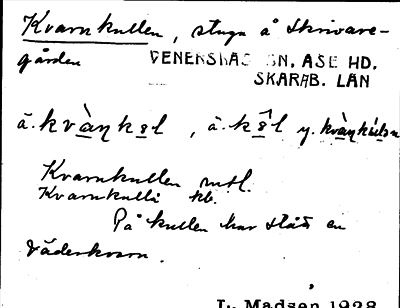 Kvarnkullen, stuga å Skrivare-
gården VENERSNÄS SN. ÅSE HD.
SKARAB. LÄN
å. kvàṇkel, å. kêl y.
Kvarnkullen mtl.
Kvarnkulle kb.
På kullen har stått en
väderkvarn.
L. Madsen 1928